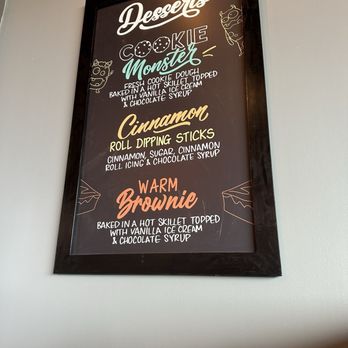 Desserts
COOKIE
Monster
FRESH COOKIE DOUGH
BAKED IN A HOT SKILLET TOPPED
WITH VANILLA ICE CREAM
& CHOCOLATE SYRUP
Cinnamon
ROLL DIPPING STICKS
CINNAMON, SUGAR, CINNAMON
ROLL ICING & CHOCOLATE SYRUP
WARM
Brownie
BAKED IN A HOT SKILLET TOPPED
WITH VANILLA ICE CREAM
& CHOCOLATE SYRUP